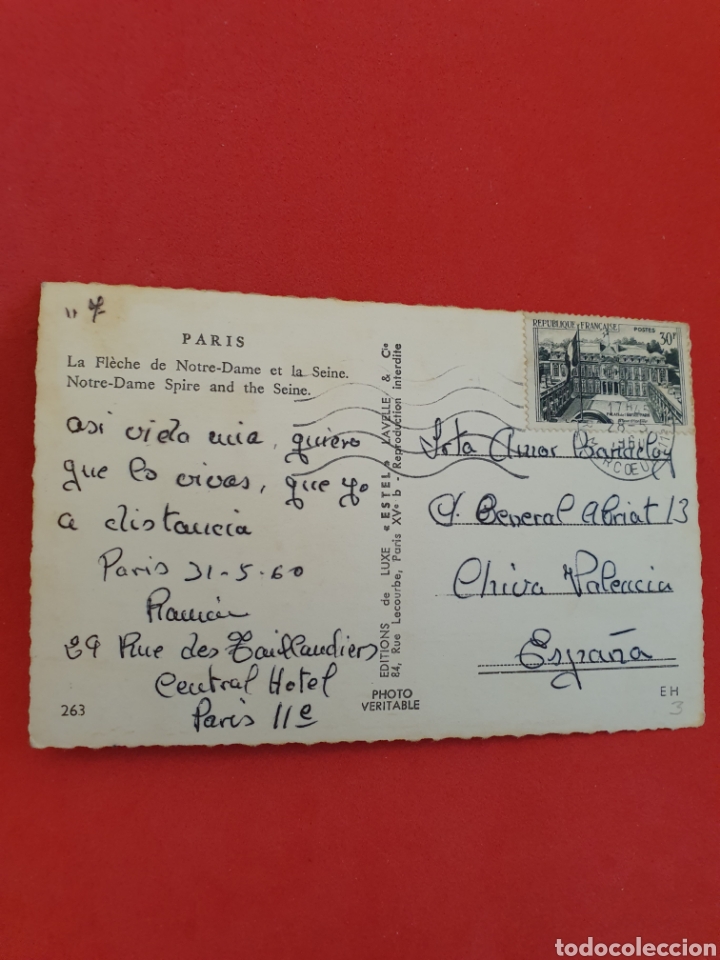 " 7
PARIS
La Flèche de Notre-Dame et la Seine.
Notre-Dame Spire and the Seine.
asi vida mia, quiero
que lo vivas, que yo
a distancia
Paris 31-5-60
Ramón
29 Rue des Taillandiers
Central Hotel
Paris 11e
263
EDITIONS de LUXE « ESTEL » LAVELLE & Cie
84, Rue Lecourbe, Paris XVe b - Reproduction interdite
PHOTO
VERITABLE
REPUBLIQUE FRANÇAISE POSTES
30F
1960
Srta Amor
C/. General 13
Chiva Valencia
España
EH
3
todocoleccion